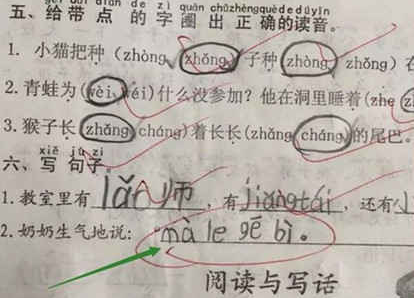 gěi dài diǎn de zì quān chūzhèngquèdedúyīn
五、给带点的字圈出正确的读音。
1. 小猫把种（zhòng zhǒng）子种（zhòng zhǒng）在
2. 青蛙为（wèi wéi）什么没参加？他在洞里睡着（zhe
3. 猴子长（zhǎng cháng）着长长（zhǎng cháng）的尾巴。
xiě jù zi
六、写句子。
1. 教室里有 lǎo 师，有 jiǎngtái，还有
2. 奶奶生气地说：mà le gē bì。
阅读与写话